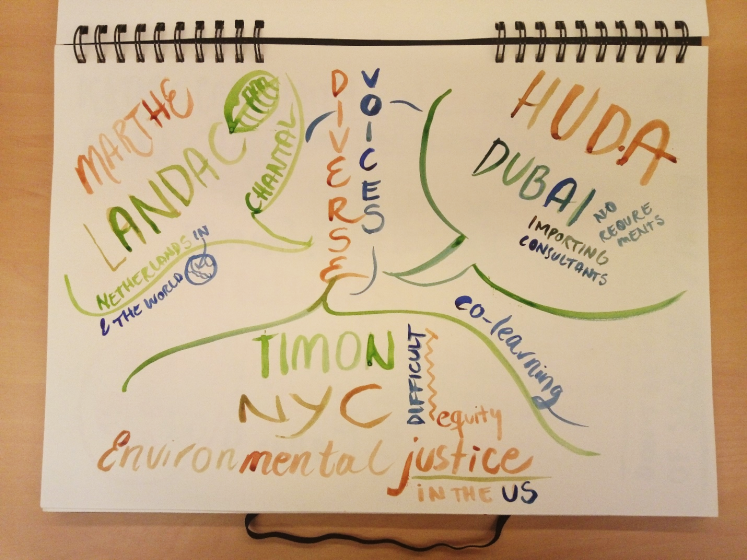 DIVERSE
VOICES
MARTHE
LANDAC
CHANTAL
NETHERLANDS IN
& THE WORLD
HUDA
DUBAI
NO
REQURE
MENTS
IMPORTING
CONSULTANTS
TIMON
NYC
DIFFICULT
equity
co-learning
Environmental justice
IN THE US